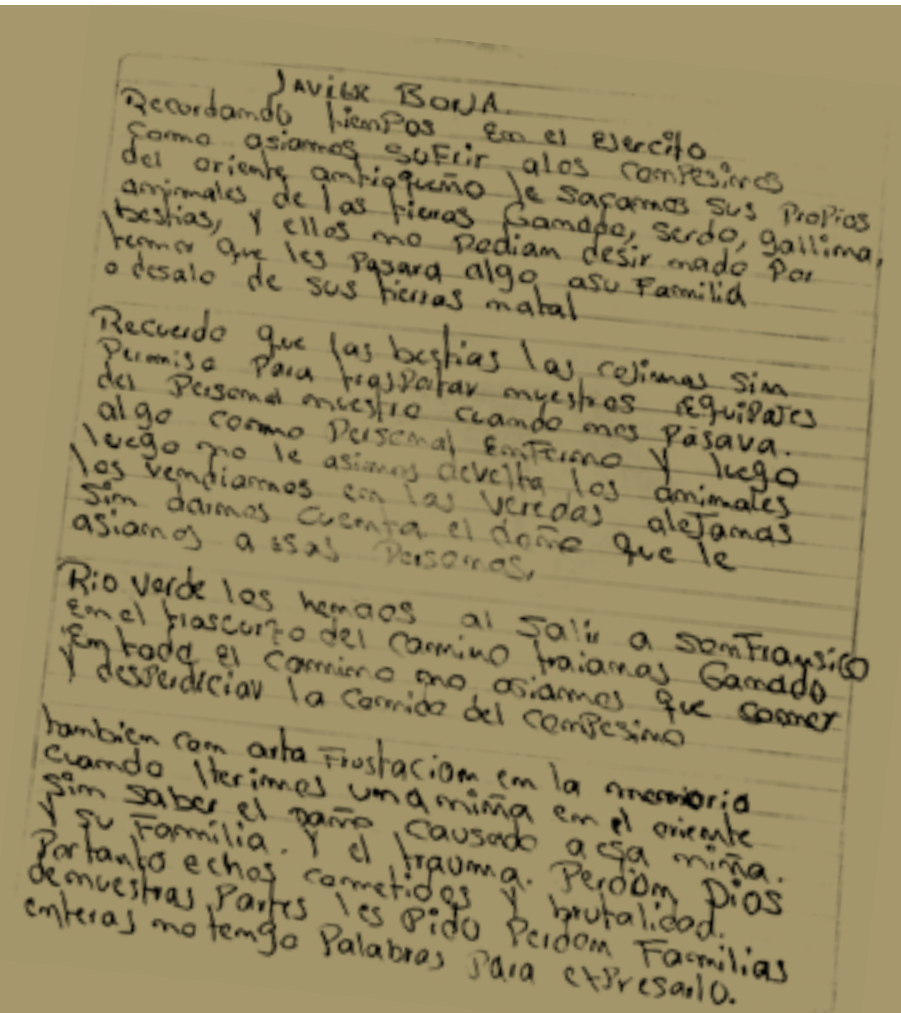 JAVIER BORJA.
Recordando tiempos en el Ejercito
como asiamos sufrir alos campesinos
del oriente antioqueño le sacamos sus propios
animales de las tieras Ganado, serdo, gallina,
bestias, y ellos no podian desir nado por
temor que les pasara algo asu Familia
o desalo de sus tierras natal
Recuerdo que las bestias las cojimos sin
Permiso Para trasportar nuestros equipajes
del Personal nuestro cuando nos pasava.
algo como Personal Enfermo y luego
luego no le asiamos develta los animales
los vendiamos en las veredas alejamas
sin darnos cuenta el daño que le
asiamos a esas Personas,
Rio verde los henaos al salir a sanFransico
En el trascurzo del camino traiamas Ganado
En todo el camino no asiamos que comer
y desperdiciar la comida del campesino
tambien con arta Frustacion en la memorio
cuando Herimos una niña en el oriente
sin saber el daño causado aesa niña.
y su Familia. Y el trauma. Perdon Dios
Portanto echos cometidos y brutalidad.
de nuestras Partes les Pido Perdon Familias
enteras no tengo Palabras para expresarlo.